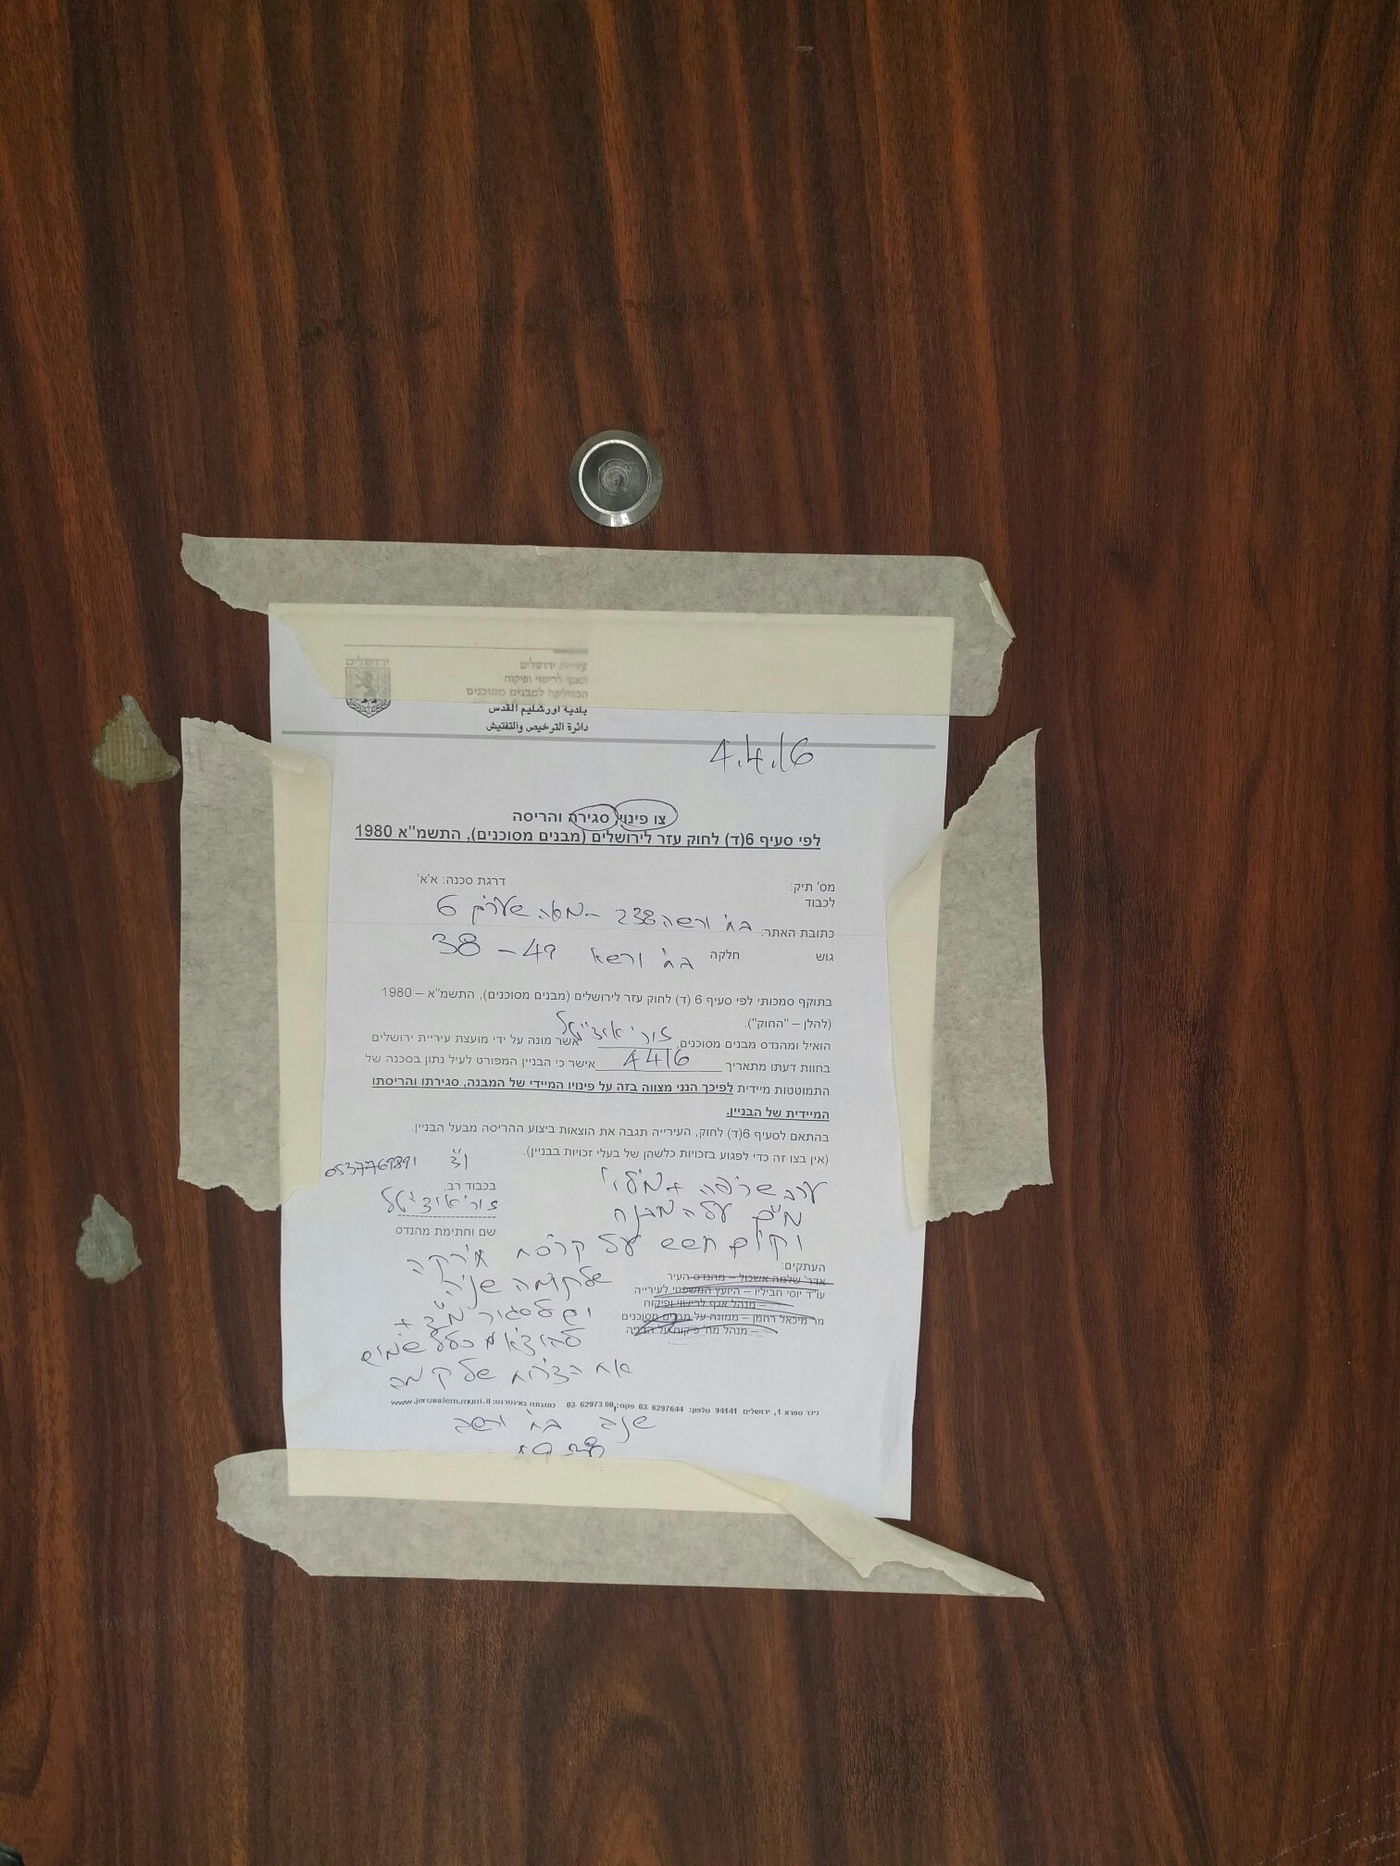 ירושלים
עיריית ירושלים
האגף לרישוי ופיקוח
המחלקה למבנים מסוכנים
بلدية اورشليم القدس
دائرة الترخيص والتفتيش
4.4.16
צו פינוי סגירה והריסה
לפי סעיף 6(ד) לחוק עזר לירושלים (מבנים מסוכנים), התשמ"א 1980
מס' תיק: דרגת סכנה: א'א'
לכבוד
כתובת האתר: בתי ורשה 238 – מאה שערים 6
גוש חלקה בתי ורשא 49 – 38
בתוקף סמכותי לפי סעיף 6 (ד) לחוק עזר לירושלים (מבנים מסוכנים), התשמ"א – 1980
(להלן – "החוק").
הואיל ומהנדס מבנים מסוכנים, אשר מונה על ידי מועצת עיריית ירושלים
בחוות דעתו מתאריך 4416 אישר כי הבניין המפורט לעיל נתון בסכנה של
התמוטטות מיידית לפיכך הנני מצווה בזה על פינויו המיידי של המבנה, סגירתו והריסתו
המיידית של הבניין.
בהתאם לסעיף 6(ד) לחוק, העירייה תגבה את הוצאות ביצוע ההריסה מבעל הבניין.
(אין בצו זה כדי לפגוע בזכויות כלשהן של בעלי זכויות בבניין).
0537769891
בכבוד רב,
שם וחתימת מהנדס
עקב שריפה +
מים המבנה
וקיים חשש על קריסת תקרה
של קומה שניה
העתקים:
אדר' שלמה אשכול – מהנדס העיר
עו"ד יוסי חביליו – היועץ המשפטי לעירייה
– מנהל אגף לרישוי ופיקוח
מר מיכאל רחמן – ממונה על מבנים מסוכנים
– מנהל מח' פיקוח על הבניה
יש לסגור +
את של קומה
כיכר ספרא 1, ירושלים 94141 טלפון: 02-6297644 פקס: 02-6297380 כתובתנו באינטרנט: www.jerusalem.muni.il
שניה בתי ורשה